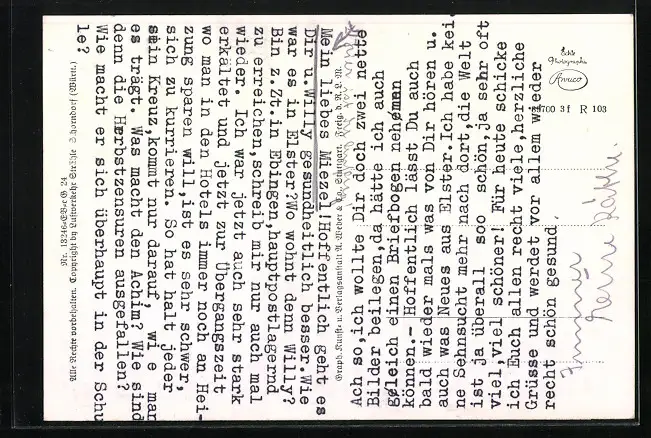 Mein liebes Miezel! Hoffentlich geht es
Dir u. Willy gesundheitlich besser. Wie
war es in Elster? Wo wohnt denn Willy?
Bin z.Zt. in Ebingen, hauptpostlagernd
zu erreichen, schreib mir nur auch mal
wieder. Ich war jetzt auch sehr stark
erkältet und jetzt zur Übergangszeit
wo man in den Hotels immer noch an Hei-
zung sparen will, ist es sehr schwer,
sich zu kurrieren. So hat halt jeder
sein Kreuz, kommt nur darauf, wi e man
es trägt. Was macht den Achim? Wie sind
denn die Herbstzensuren ausgefallen?
Wie macht er sich überhaupt in der Schu
le?
Nr. 18246
Alle Rechte vorbehalten. Copyright by Luftverkehr Strähle Schorndorf (Württ.)
Graph. Kunst- u. Verlagsanstalt A. Weber & Co., Stuttgart.
Ach so, ich wollte Dir doch zwei nette
Bilder beilegen, da hätte ich auch
gleich einen Briefbogen nehman
können.- Hoffentlich lässt Du auch
bald wieder mals was von Dir hören u.
auch was Neues aus Elster. Ich habe kei
ne Sehnsucht mehr nach dort, die Welt
ist ja überall soo schön, ja sehr oft
viel, viel schöner! Für heute schicke
ich Euch allen recht viele, herzliche
Grüsse und werdet vor allem wieder
recht schön gesund.
Echte
Photographie
R 103